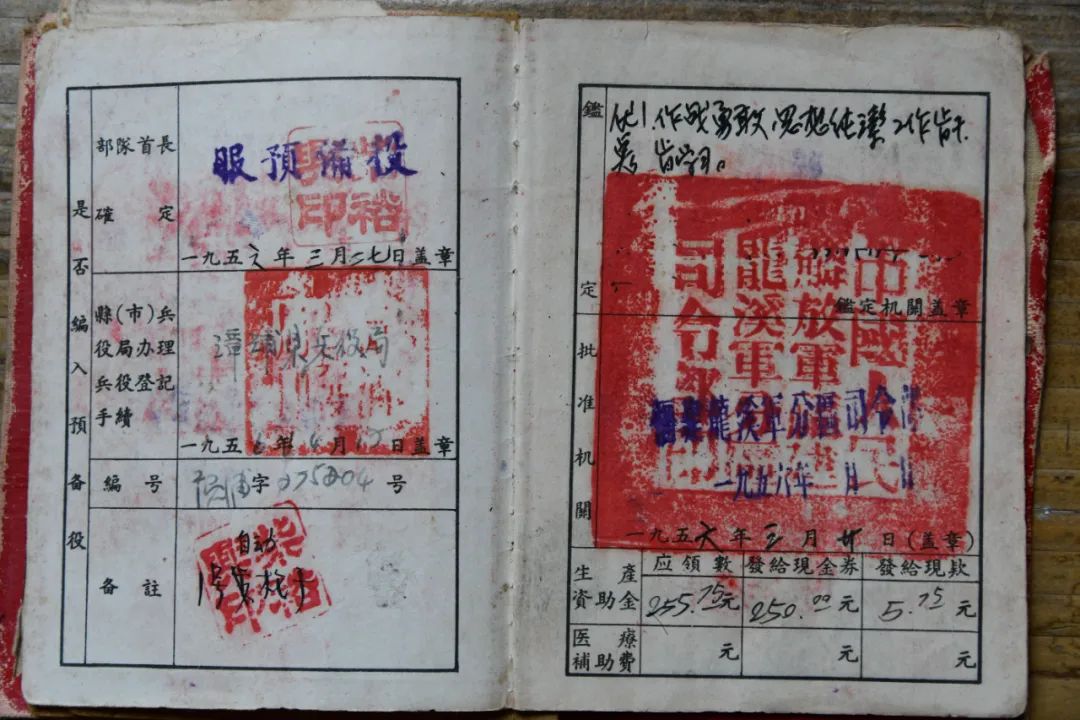 是否編入預备役
部隊首長
確定
服預備役
一九五六年三月二七日盖章
縣(市)兵
役局办理
兵役登記
手續
漳浦県兵役局
一九五6年4月12日盖章
編号
字275204号
备註
自动
鑑定
作战勇敢,思想纯潔,工作皆
鑑定机關盖章
批准机關
中國人民
解放軍
龍溪軍
司令部
福建龍溪軍分區司令部
一九五六年 月 日
一九五六年三月廿日(盖章)
生產
資助金
应領數
發給現金券
發給現款
255.75元
250.00元
5.75元
医療
補助費
元
元
元